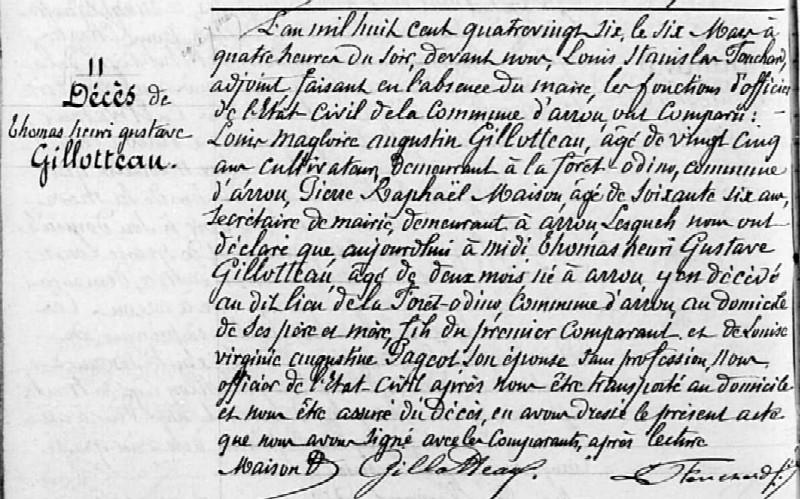 11
Décès de
thomas henri gustave
Gillotteau.
L'an mil huit cent quatrevingt six, le six Mars à
quatre heures du soir, devant nous, Louis Stanislas Touchard
adjoint faisant en l'absence du maire, les fonctions d'officier
de l'Etat Civil de la Commune d'arrou ont Comparu :
Louis magloire augustin Gillotteau, âgé de vingt cinq
ans cultivateur, demeurant à la foret-odino, commune
d'arrou, Pierre Raphaël Maison âgé de soixante six ans,
secrétaire de mairie, demeurant à arrou Lesquels nous ont
déclaré que aujourd'hui à midi thomas henri Gustave
Gillotteau, âgé de deux mois né à arrou, y en décédé
au dit lieu de la Foret-odino, Commune d'arrou, au domicile
de ses père et mère, fils du premier Comparant et de Louise
virginie augustine Pageot son épouse sans profession, Nous
officier de l'état Civil après nous être transporté au domicile
et nous être assuré du décès, en avons dressé le présent acte
que nous avons signé avec les Comparants, après lecture
Maison Gillotteau. Touchard